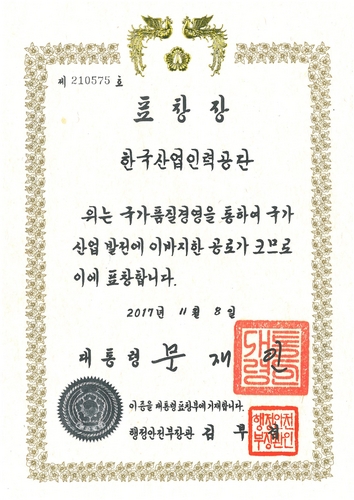 제 210575 호
표 창 장
한국산업인력공단
위는 국가품질경영을 통하여 국가
산업 발전에 이바지한 공로가 크므로
이에 표창합니다.
2017년 11월 8일
대통령 문 재 인
이 증을 대통령 표창부에 기재합니다.
행정안전부장관 김 부 겸
행정안전
부장관인